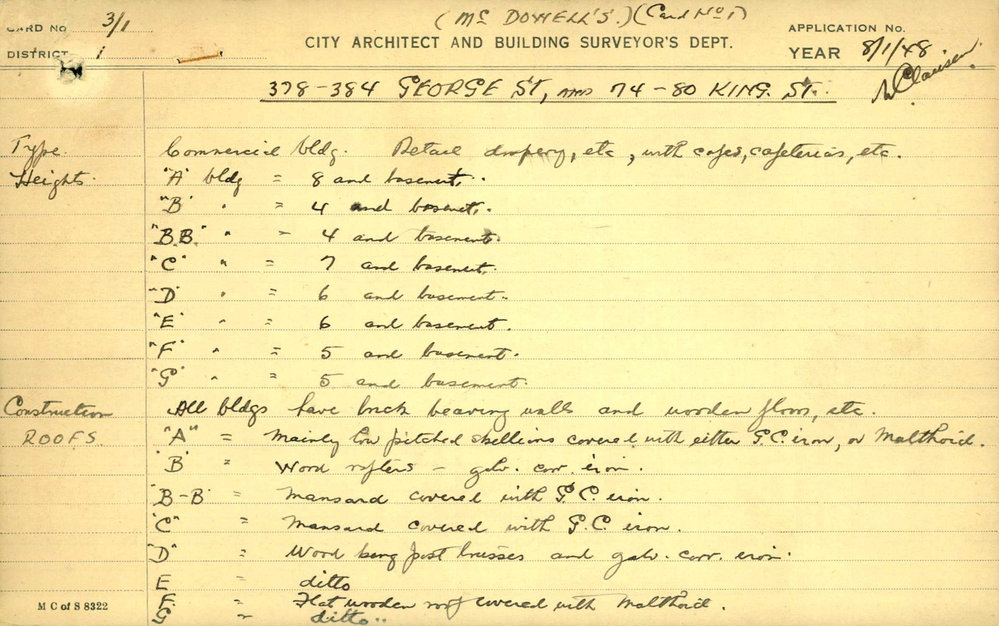 (McDOWELL'S.) (Card No 1)
CARD No 3/1
CITY ARCHITECT AND BUILDING SURVEYOR'S DEPT.
APPLICATION No.
DISTRICT 1
YEAR 8/1/48
378-384 GEORGE St, AND 74-80 KING. St.
Type. Commercial bldg. Retail drapery, etc, with cafes, cafeterias, etc.
Heights. "A" bldg = 8 and basement.
"B" " = 4 and basemet.
"B.B." " = 4 and basement.
"C" " = 7 and basement.
"D" " = 6 and basement.
"E" " = 6 and basement.
"F" " = 5 and basement.
"G" " = 5 and basement.
Construction All bldgs have brick bearing walls and wooden floors, etc.
ROOFS. "A" = Mainly low pitched skellions covered with either G.C. iron, or Malthoid.
"B" " Wood rafters - galv. corr. iron.
"B-B" = Mansard covered with G.C. iron.
"C" = Mansard covered with G.C. iron.
"D" = Wood king post trusses and galv. corr. iron.
E = ditto
F. = Flat wooden roof covered with Malthoid.
G " ditto..
M C of S 8322